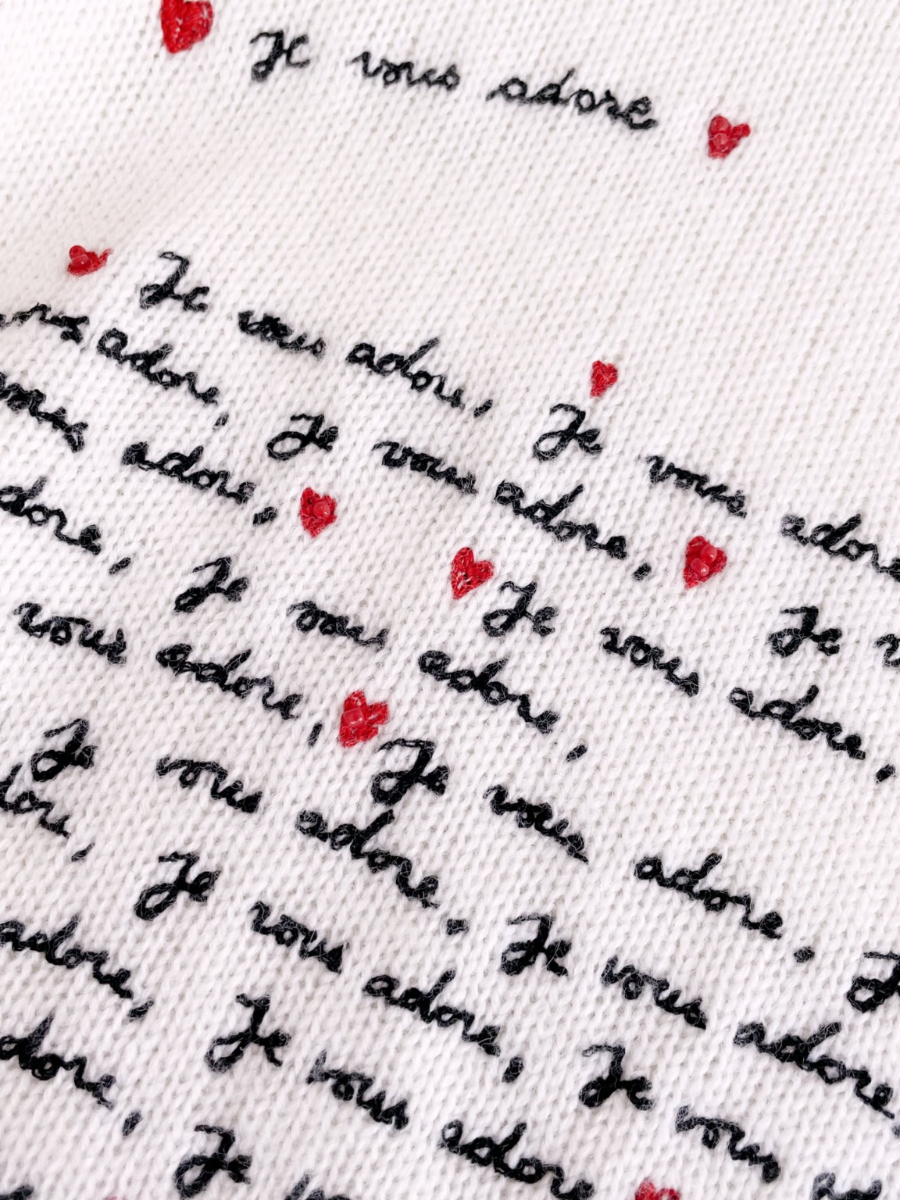 Je vous adore
Je vous adore, Je vous adore
adore, Je vous adore, Je
adore, Je vous adore,
dore, Je vous adore,
vous adore, Je vous adore, J
Je vous adore, Je vous adore
Je vous adore, Je vous
adore, Je vous adore
dore, Je